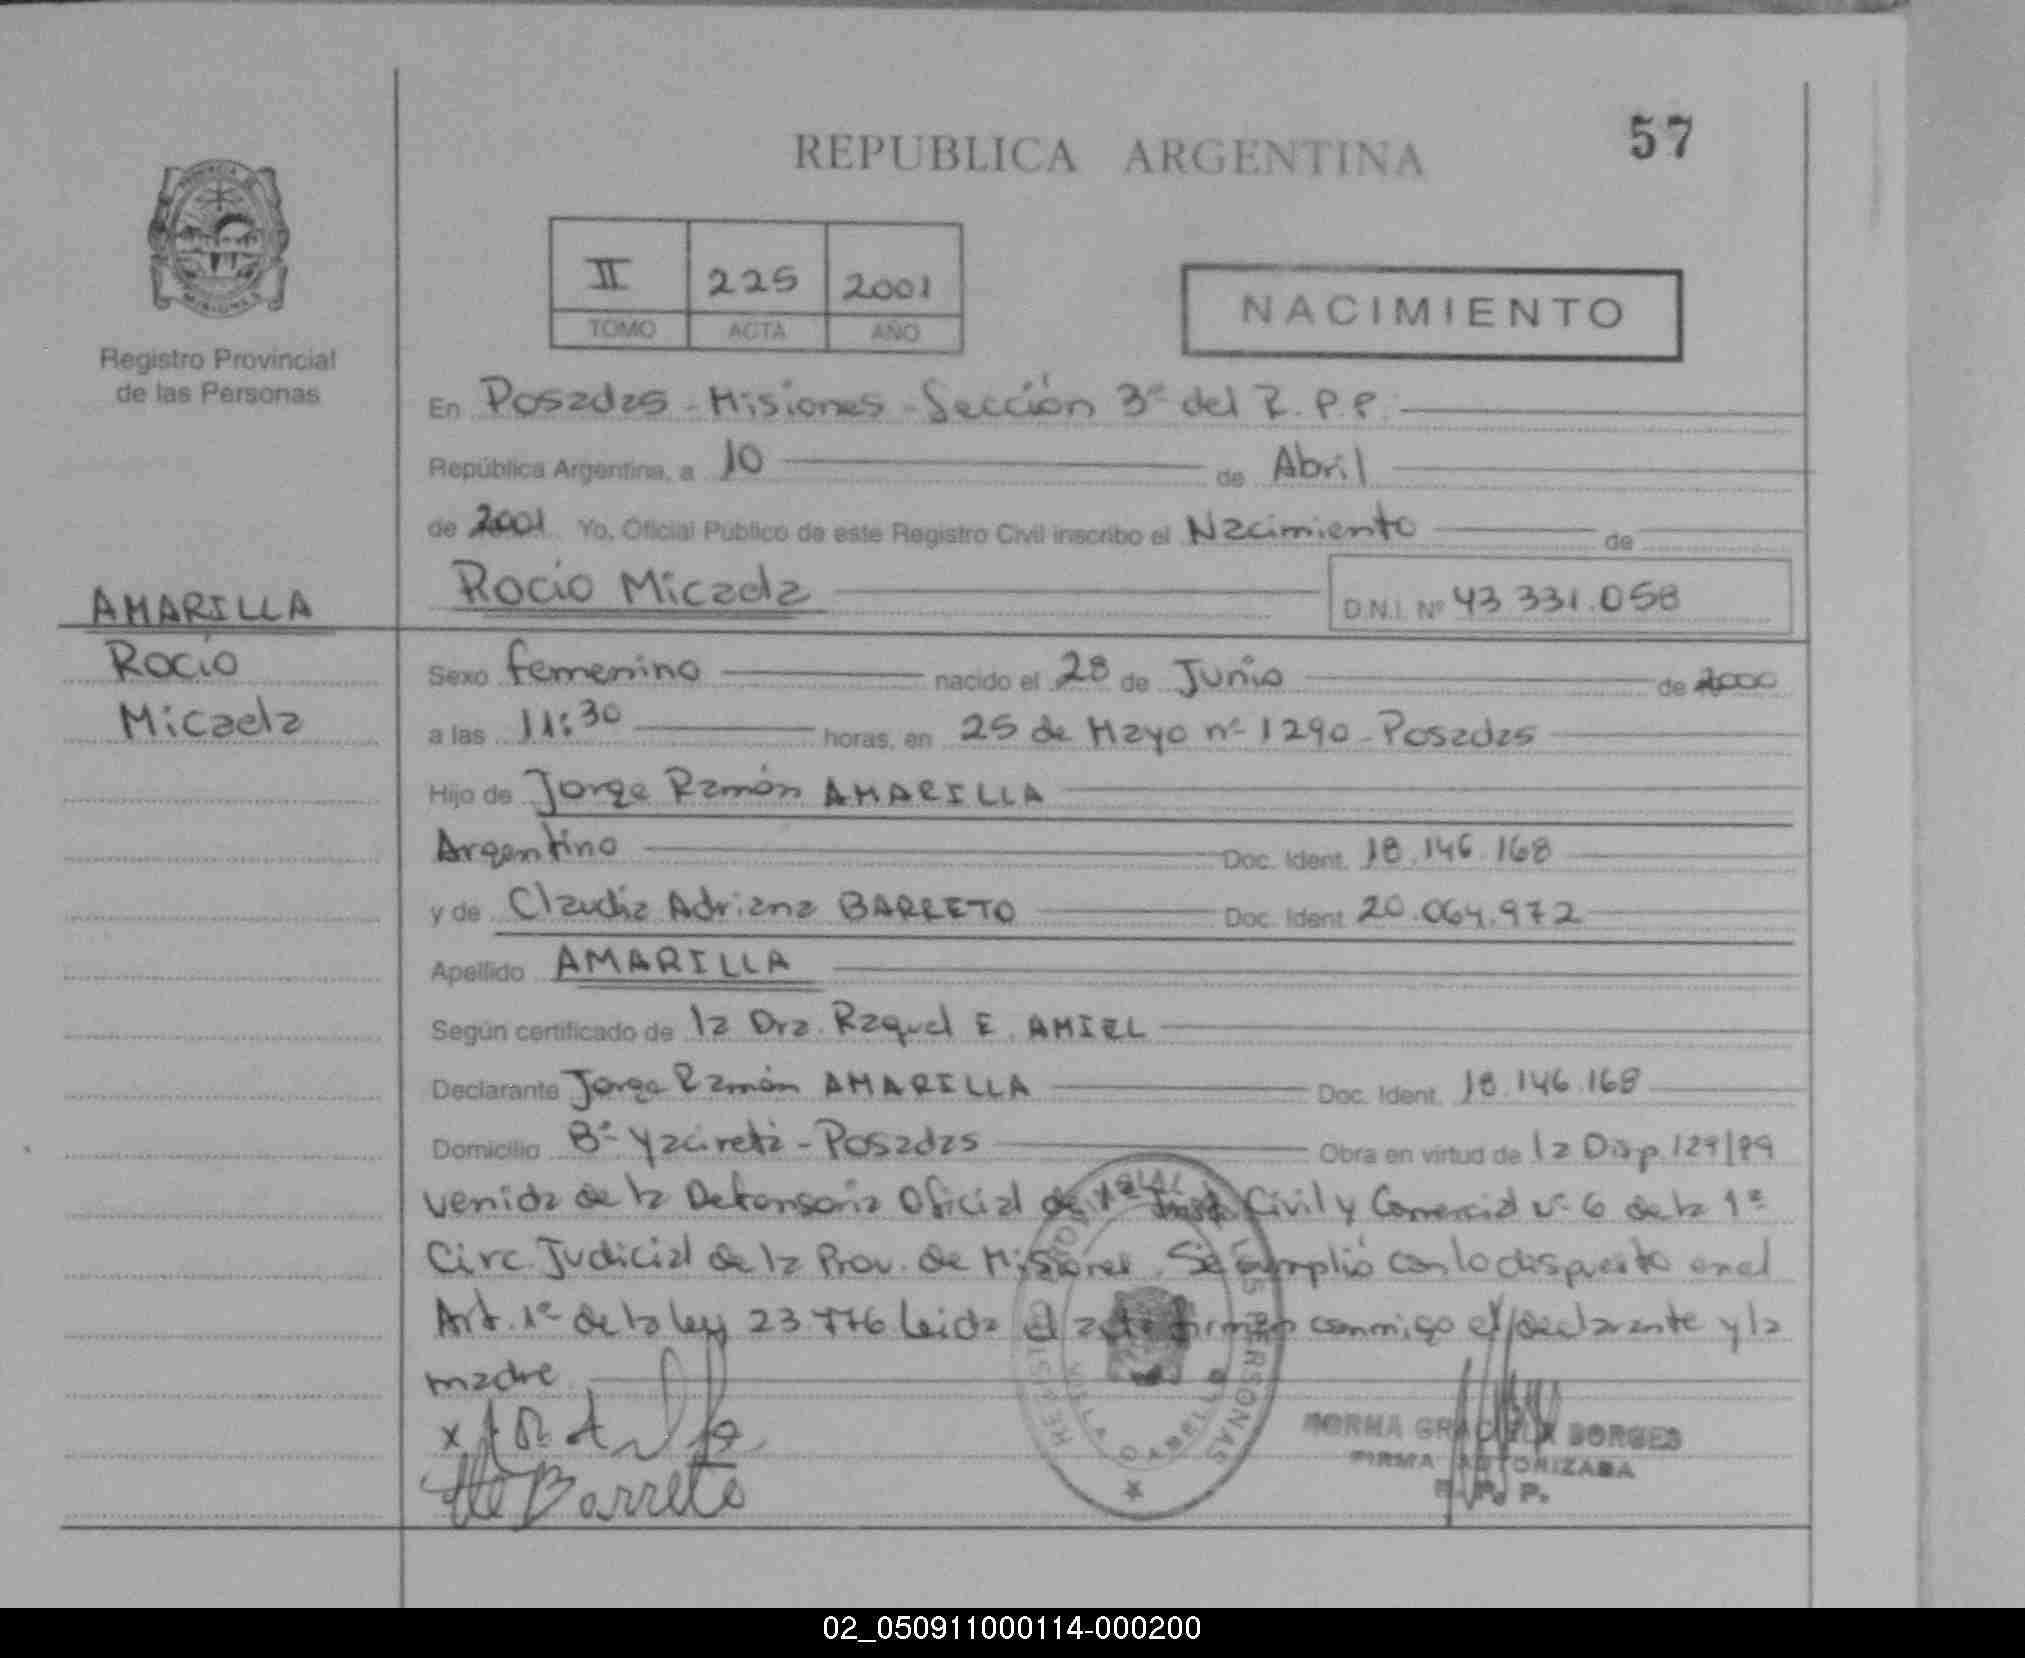 57
REPUBLICA ARGENTINA
II 225 2001
TOMO ACTA AÑO
NACIMIENTO
Registro Provincial
de las Personas
En Posadas - Misiones - Sección 3ª del R.P.P.
República Argentina, a 10 de Abril
de 2001 Yo, Oficial Público de este Registro Civil inscribo el Nacimiento de
Rocío Micaela D.N.I. Nº 43 331.058
AMARILLA
Rocío
Micaela
Sexo femenino nacido el 28 de Junio de 2000
a las 11:30 horas, en 25 de Mayo nº 1290 - Posadas
Hijo de Jorge Ramón AMARILLA
Argentino Doc. Ident. 18.146.168
y de Claudia Adriana BARRETO Doc. Ident. 20.064.972
Apellido AMARILLA
Según certificado de la Dra. Raquel E. AMIEL
Declarante Jorge Ramón AMARILLA Doc. Ident. 18.146.168
Domicilio Bº Yaciretá - Posadas Obra en virtud de la Disp.
venida de la Defensoría Oficial de 1ª Inst. Civil y Comercial Nº 6 de la 1ª
Circ. Judicial de la Prov. de Misiones. Se cumplió con lo dispuesto en el
Art. 1º de la ley 23776 leida el acta firman conmigo el declarante y la
madre
Barreto
NORMA GRACIELA BORGES
FIRMA AUTORIZADA
R. P. P.
02_050911000114-000200